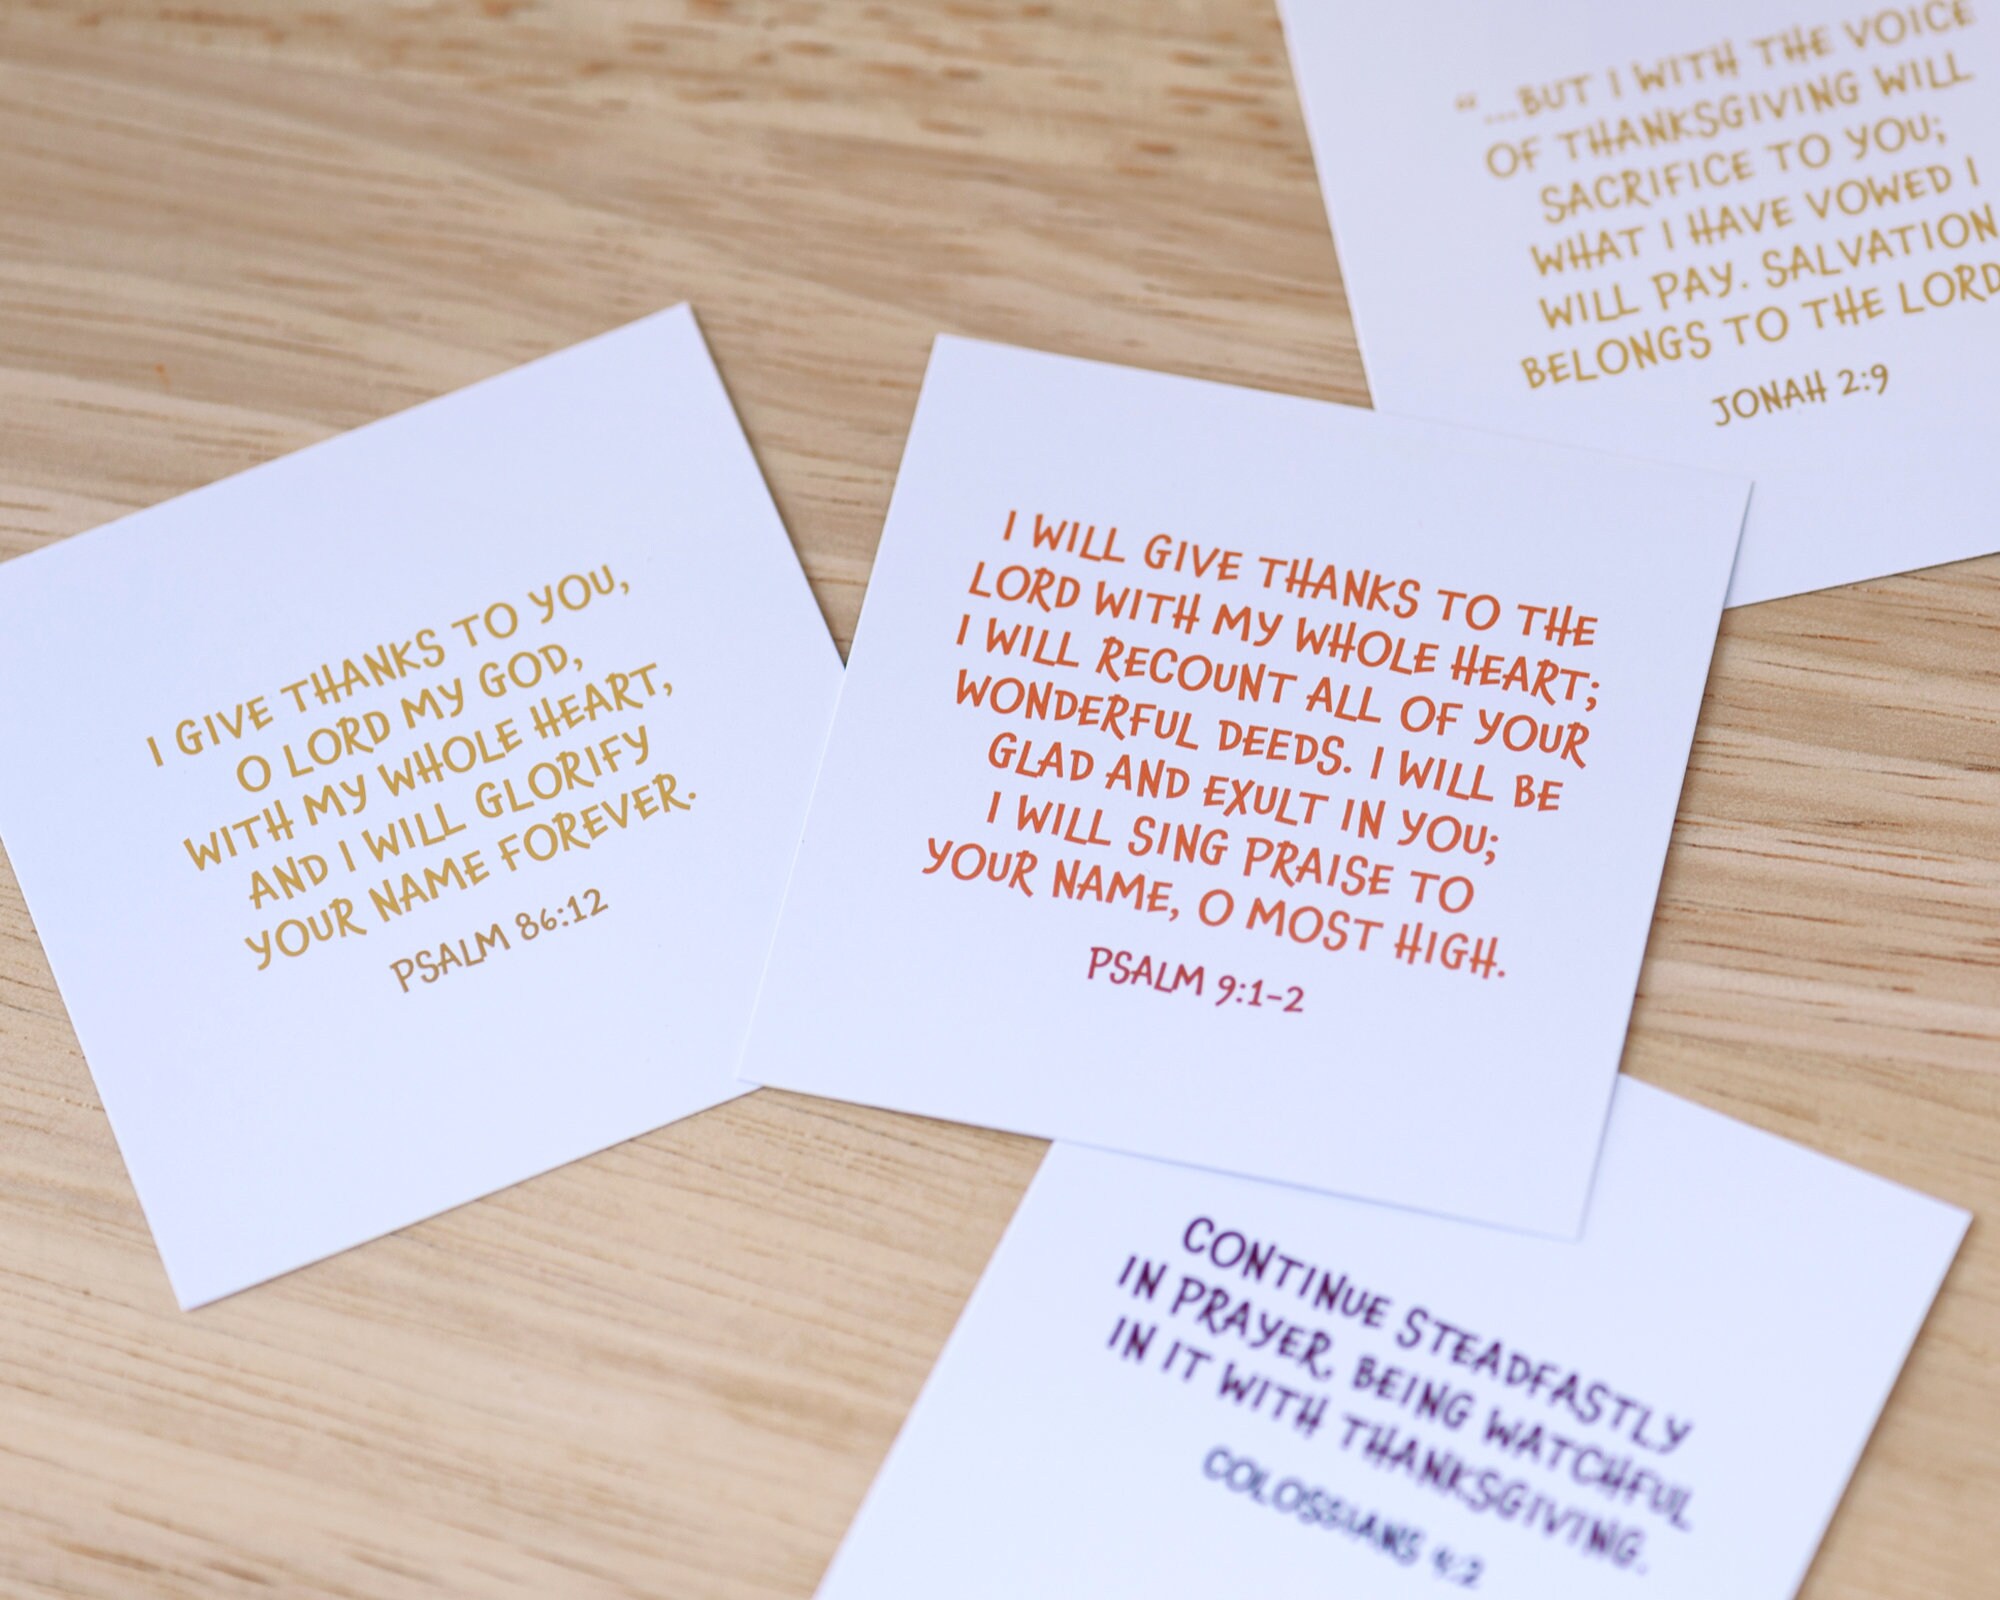 "...BUT I WITH THE VOICE
OF THANKSGIVING WILL
SACRIFICE TO YOU;
WHAT I HAVE VOWED I
WILL PAY. SALVATION
BELONGS TO THE LORD
JONAH 2:9
I GIVE THANKS TO YOU,
O LORD MY GOD,
WITH MY WHOLE HEART,
AND I WILL GLORIFY
YOUR NAME FOREVER.
PSALM 86:12
I WILL GIVE THANKS TO THE
LORD WITH MY WHOLE HEART;
I WILL RECOUNT ALL OF YOUR
WONDERFUL DEEDS. I WILL BE
GLAD AND EXULT IN YOU;
I WILL SING PRAISE TO
YOUR NAME, O MOST HIGH.
PSALM 9:1-2
CONTINUE STEADFASTLY
IN PRAYER, BEING WATCHFUL
IN IT WITH THANKSGIVING.
COLOSSIANS 4:2